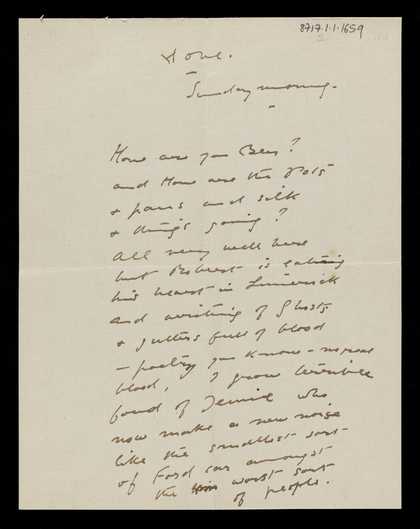 8717.1.1.1659
Home.
Sunday morning.
How are you Ben?
and How are the Pots
& pans and silk
& things going?
All very well here
but Robert is eating
his heart in Limerick
and writing of Ghosts
& gutters full of blood
— poetry you know — no real
blood, I grow terribly
fond of Jennie who
now make a new noise
like the smallest sort
of Ford car amongst
the worst sort
of people.